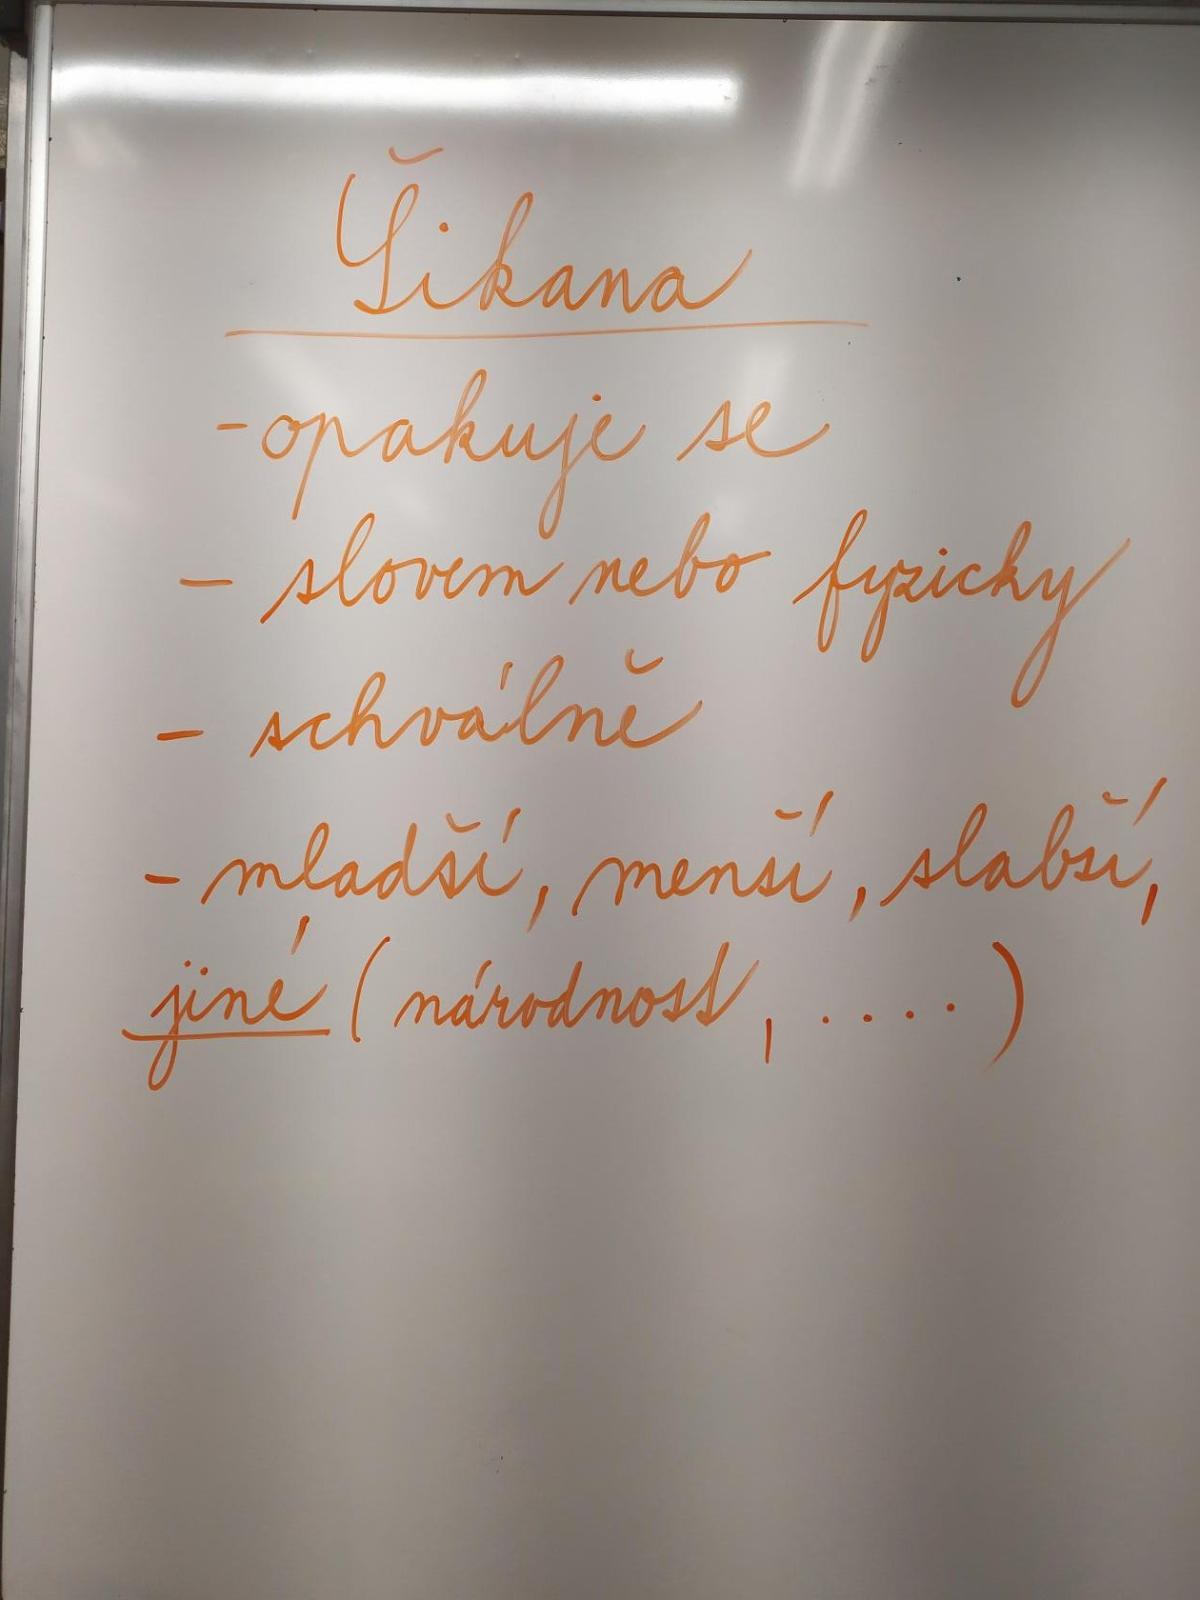 Šikana
- opakuje se
- slovem nebo fyzicky
- schválně
- mladší, menší, slabší,
jiné (národnost, ....)